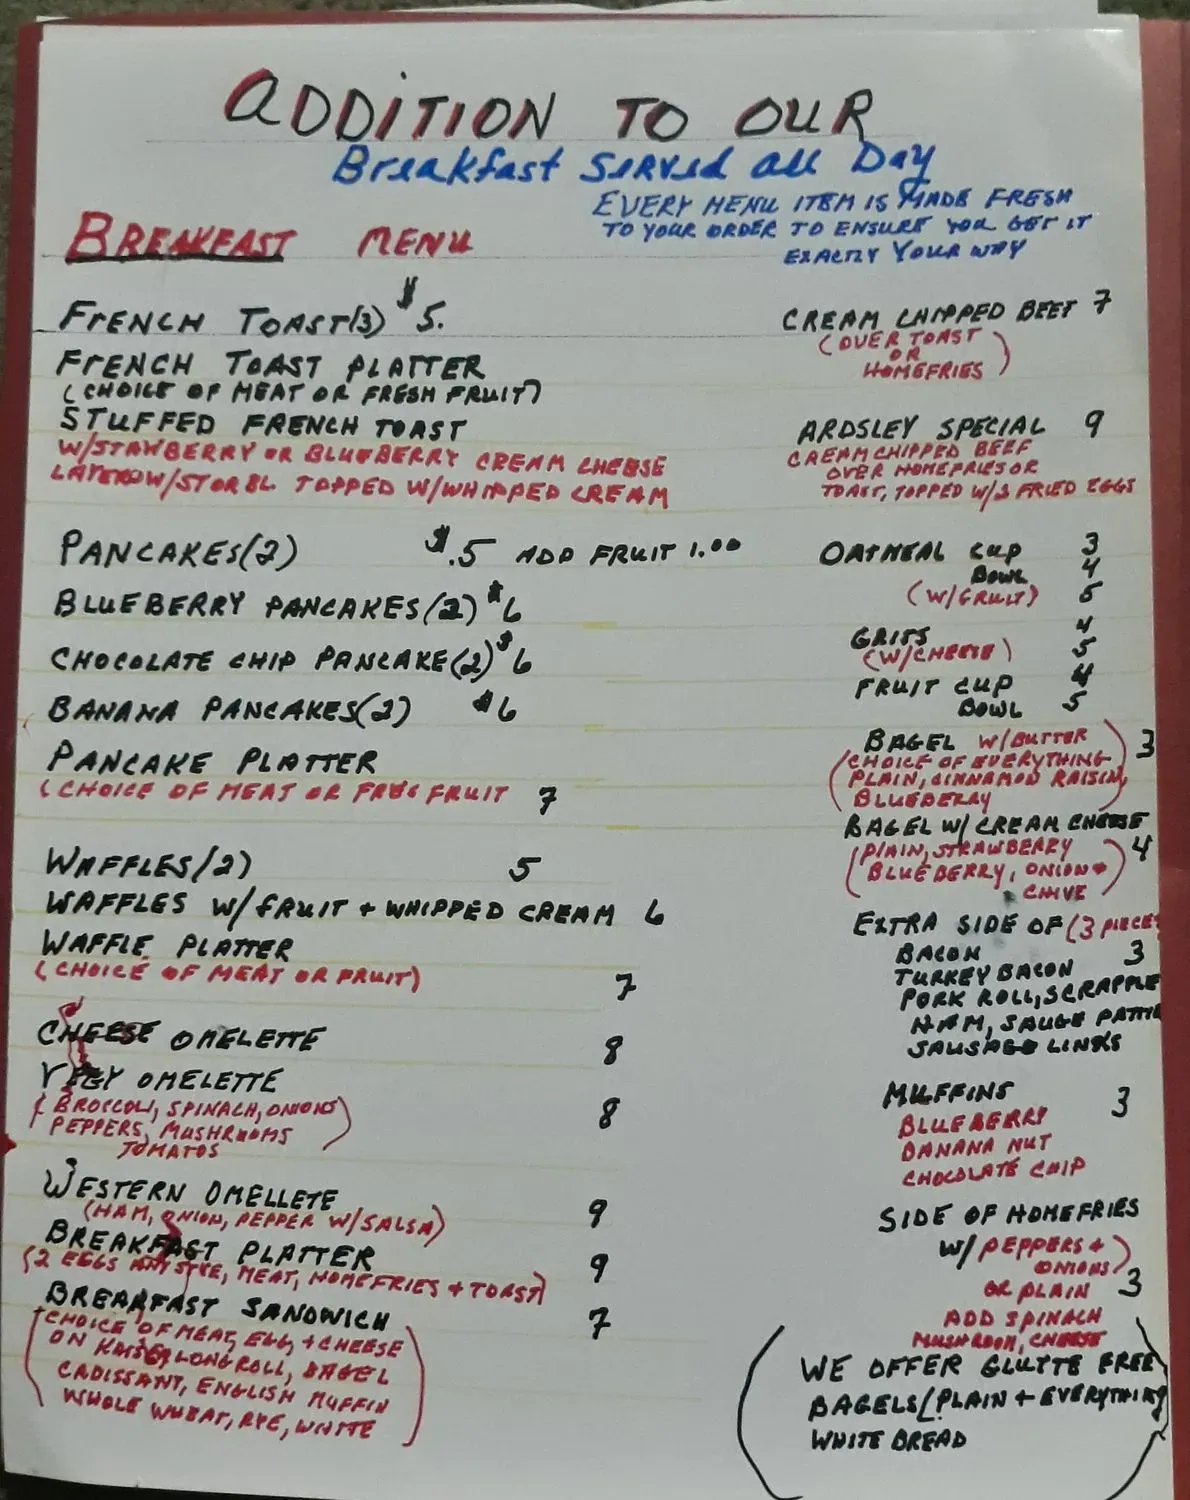 ADDITION TO OUR
Breakfast SERVED all Day
EVERY MENU ITEM IS MADE FRESH
TO YOUR ORDER TO ENSURE YOU GET IT
EXACTLY YOUR WAY
BREAKFAST MENU
FRENCH TOAST(3) $5.
FRENCH TOAST PLATTER
(CHOICE OF MEAT OR FRESH FRUIT)
STUFFED FRENCH TOAST
W/STAWBERRY OR BLUEBERRY CREAM CHEESE
W/ST OR BL. TOPPED W/WHIPPED CREAM
PANCAKES(2) $.5 ADD FRUIT 1.00
BLUEBERRY PANCAKES(2) $6
CHOCOLATE CHIP PANCAKE(2) $6
BANANA PANCAKES(2) $6
PANCAKE PLATTER
(CHOICE OF MEAT OR FRUIT 7
WAFFLES(2) 5
WAFFLES W/FRUIT + WHIPPED CREAM 6
WAFFLE PLATTER
(CHOICE OF MEAT OR FRUIT) 7
CHEESE OMELETTE 8
OMELETTE 8
(BROCCOLI, SPINACH, ONIONS
PEPPERS, MUSHROOMS
TOMATOS
WESTERN OMELLETE 9
(HAM, ONION, PEPPER W/SALSA)
BREAKFAST PLATTER 9
(2 EGGS MEAT, HOMEFRIES + TOAST)
BREAKFAST SANDWICH 7
(CHOICE OF MEAT, EGG, + CHEESE
ON KAISER LONG ROLL, BAGEL
CROISSANT, ENGLISH MUFFIN
WHOLE WHEAT, RYE, WHITE)
CREAM CHIPPED BEEF 7
(OVER TOAST
OR
HOMEFRIES)
ARDSLEY SPECIAL 9
CREAM CHIPPED BEEF
OVER HOMEFRIES OR
TOAST, TOPPED W/2 FRIED EGGS
OATMEAL CUP 3
BOWL 4
(W/FRUIT) 5
GRITS 4
(W/CHEESE) 5
FRUIT CUP 4
BOWL 5
BAGEL W/BUTTER 3
(CHOICE OF EVERYTHING
PLAIN, CINNAMON RAISIN,
BLUEBERRY)
BAGEL W/ CREAM CHEESE
(PLAIN, STRAWBERRY 4
BLUEBERRY, ONION +
CHIVE)
EXTRA SIDE OF (3 PIECE
BACON 3
TURKEY BACON
PORK ROLL, SCRAPPLE
HAM, SAUGE PATTIE
SAUSAGE LINKS
MUFFINS 3
BLUEBERRY
BANANA NUT
CHOCOLATE CHIP
SIDE OF HOMEFRIES
W/ PEPPERS +
ONIONS)
OR PLAIN 3
ADD SPINACH
MUSHROOM, CHEESE
(WE OFFER GLUTTE FREE
BAGELS (PLAIN + EVERYTHING
WHITE BREAD)